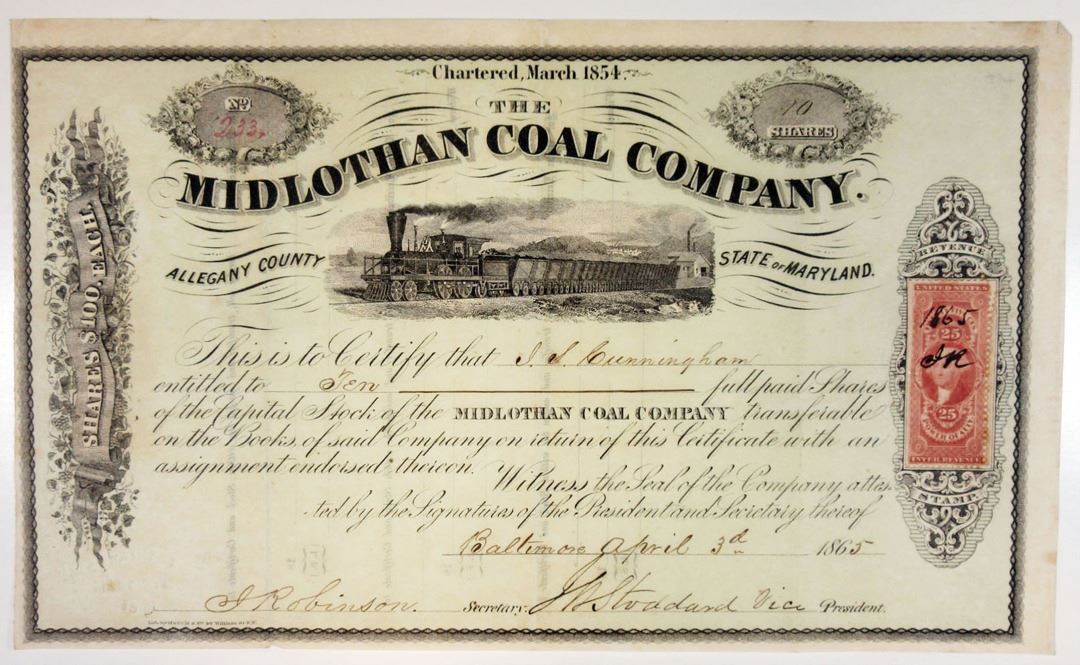 Chartered, March 1854.
No
233.
10
SHARES
THE
MIDLOTHAN COAL COMPANY.
ALLEGANY COUNTY
STATE OF MARYLAND.
SHARES $100. EACH.
REVENUE
UNITED STATES
1865
25
JR
25
POWER OF AT'Y
INTER. REVENUE
STAMP.
This is to Certify that J. S. Cunningham
entitled to Ten full paid Shares
of the Capital Stock of the MIDLOTHAN COAL COMPANY transferable
on the Books of said Company on return of this Certificate with an
assignment endorsed thereon. Witness the Seal of the Company attes
ted by the Signatures of the President and Secretary thereof
Baltimore April 3d 1865
J Robinson. Secretary. Stoddard Vice President.